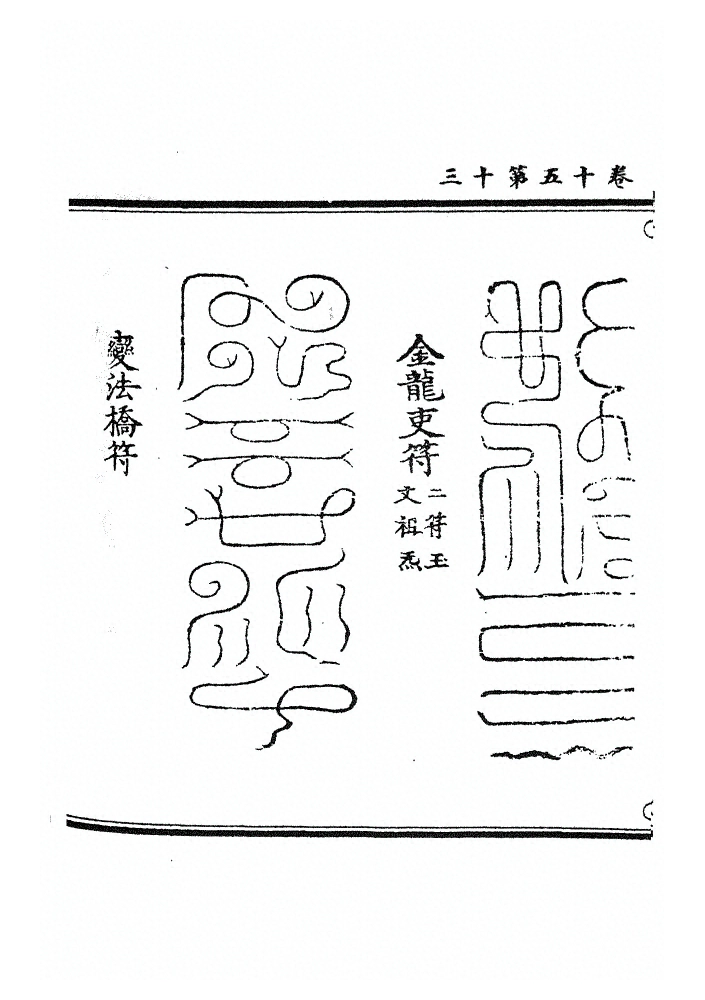 卷十五第十三
金龍吏符
二符玉
文祖炁
變法橋符